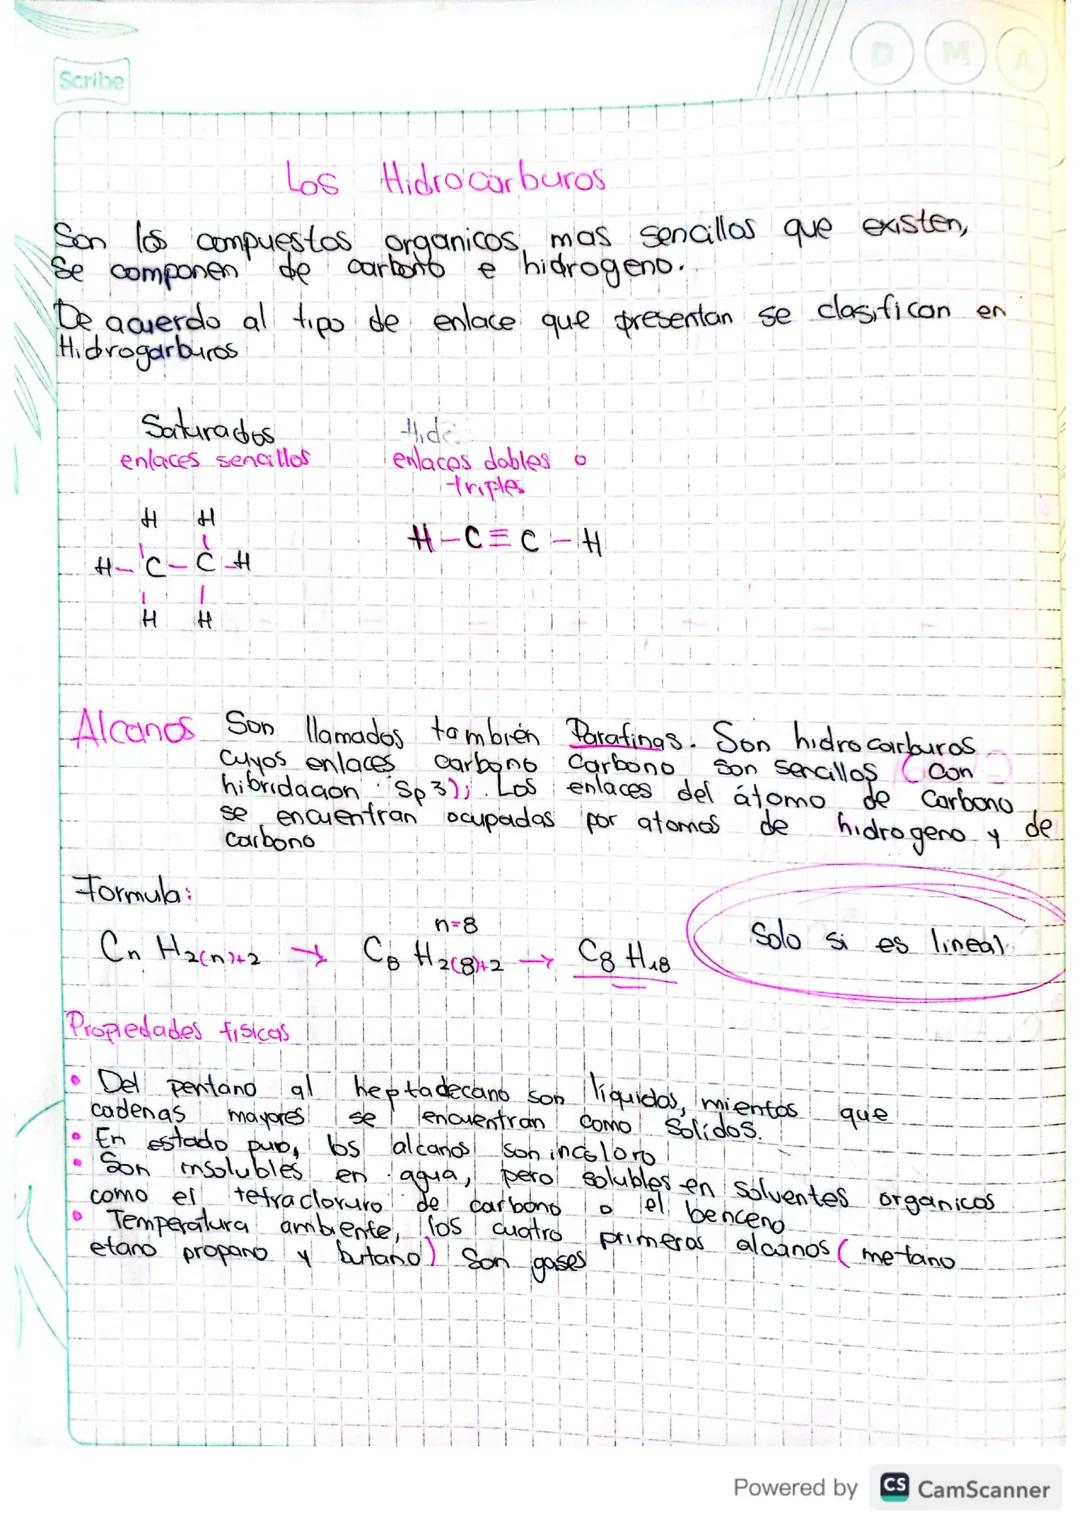 Scribe
D M A
Los Hidrocarburos
Son los compuestos organicos, mas sencillos que existen,
se componen de carbono e hidrogeno.
De acuerdo al tipo de enlace que presentan se clasifican en
Hidrogarburos
Saturados
enlaces sencillos
Hide
enlaces dobles o
triples
H H
H-C-C-H
H H
H-C≡C-H
Alcanos Son llamados también Parafinas. Son hidrocarburos
cuyos enlaces carbono carbono son sencillos (con
hibridacion sp3); Los enlaces del átomo de carbono
se encuentran ocupadas por atomos de hidrogeno y de
carbono
Formula:
n=8
Cn H2(n)+2 → C8 H2(8)+2 → C8 H18
Solo si es lineal
Propiedades fisicas
• Del pentano al heptadecano son líquidos, mientas que
cadenas mayores se encuentran como solidos.
• En estado puro, los alcanos son incoloro
• Son insolubles en agua, pero solubles en solventes organicos
como el tetracloruro de carbono o el benceno
• Temperatura ambiente, los cuatro primeros alcanos (metano
etano propano y butano) Son gases
Powered by CS CamScanner